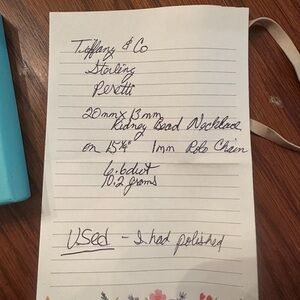 Tiffany & Co
Sterling
Peretti
20mm x 13mm
Kidney Bead Necklace
on 15¼" 1mm Rolo Chain
6.6 dwt
10.2 grams
USed - I had polished